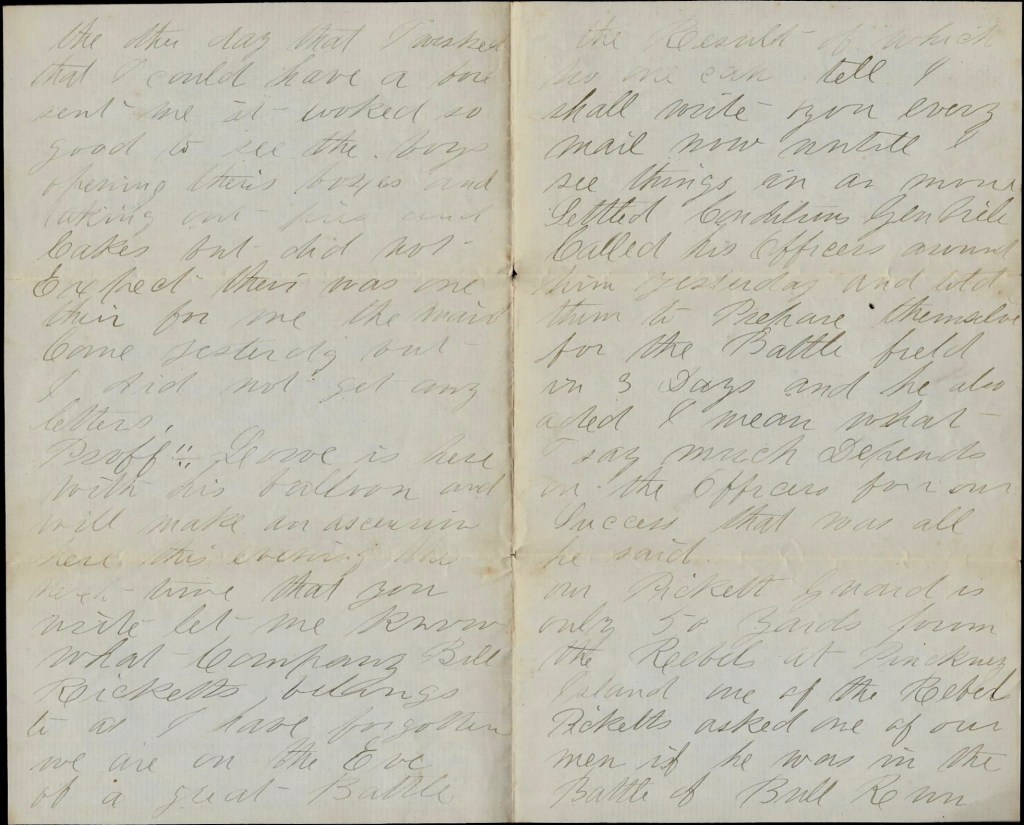 the other day that I wished
that I could have a box
sent me it looked so
good to see the boys
opening theis boxes and
taking out pies and
Cakes but did not
Expect their was one
their for me the mail
Come yesterdy but
I did not get any
letters.
Proff!! Lowe is here
with his balloon and
will make an ascension
here this evening the
next time that you
write let me know
what Company Bill
Ricketts belongs
to as I have forgotten
we are on the Eve
of a great Battle
the Result of which
no one can tell I
shall write you every
mail now untill I
see things in a more
Settled Conditions Gen
Called his Officers around
him yesterday and told
them to Prepare themselve
for the Battle field
in 3 Days and he also
aded I mean what
I say much Depends
on the Officers for our
Success that was all
he said
our Pickett Guard is
only 50 Yards from
the Rebels at Pinckney
Island one of the Rebel
Picketts asked one of our
men if he was in the
Battle of Bull Run